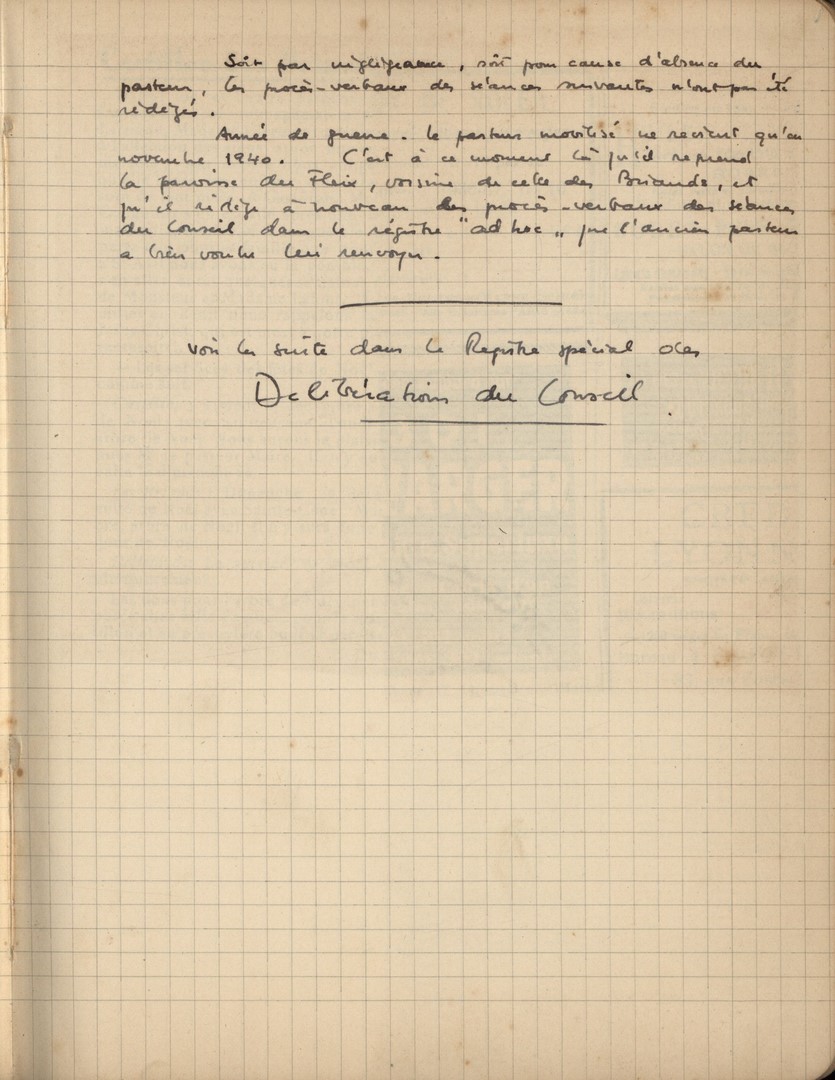 Soit par négligeance, soit pour cause d'absence du
pasteur, les procès-verbaux des séances suivantes n'ont pas été
rédigés.
Année de guerre. Le pasteur mobilisé ne revient qu'en
novembre 1940. C'est à ce moment là qu'il reprend
la paroisse du Fleix, voisine de celle des Briands, et
qu'il rédige à nouveau les procès-verbaux des séances
du Conseil dans le régistre "ad hoc" que l'ancien pasteur
a bien voulu lui renvoyer.
Voir la suite dans le Registre spécial des
Délibérations du Conseil